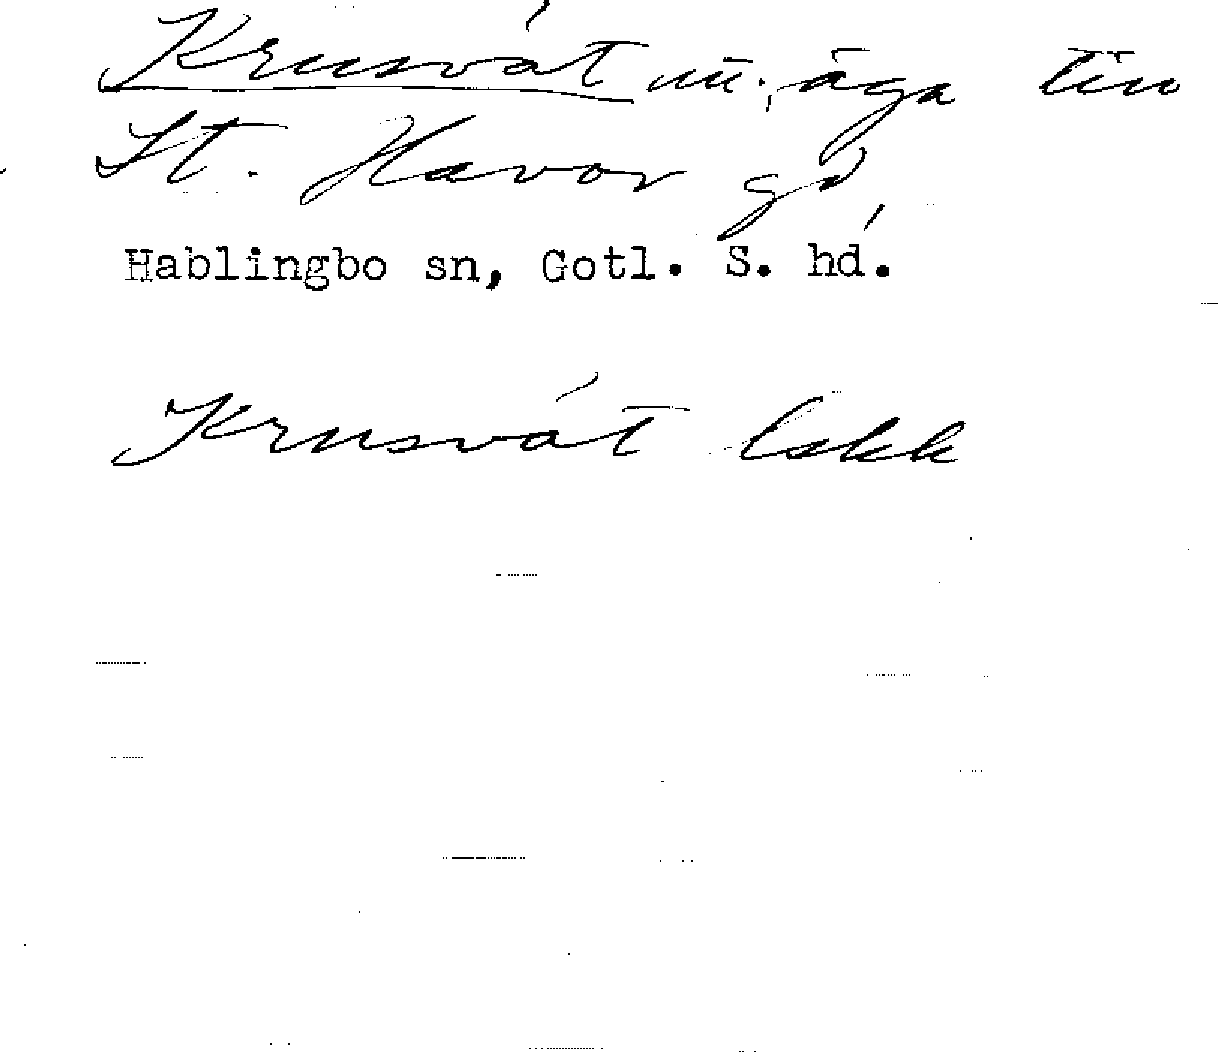 Krusvát m., äga till
St. Havor gd
Hablingbo sn, Gotl. S. hd.
Krusvát lskk